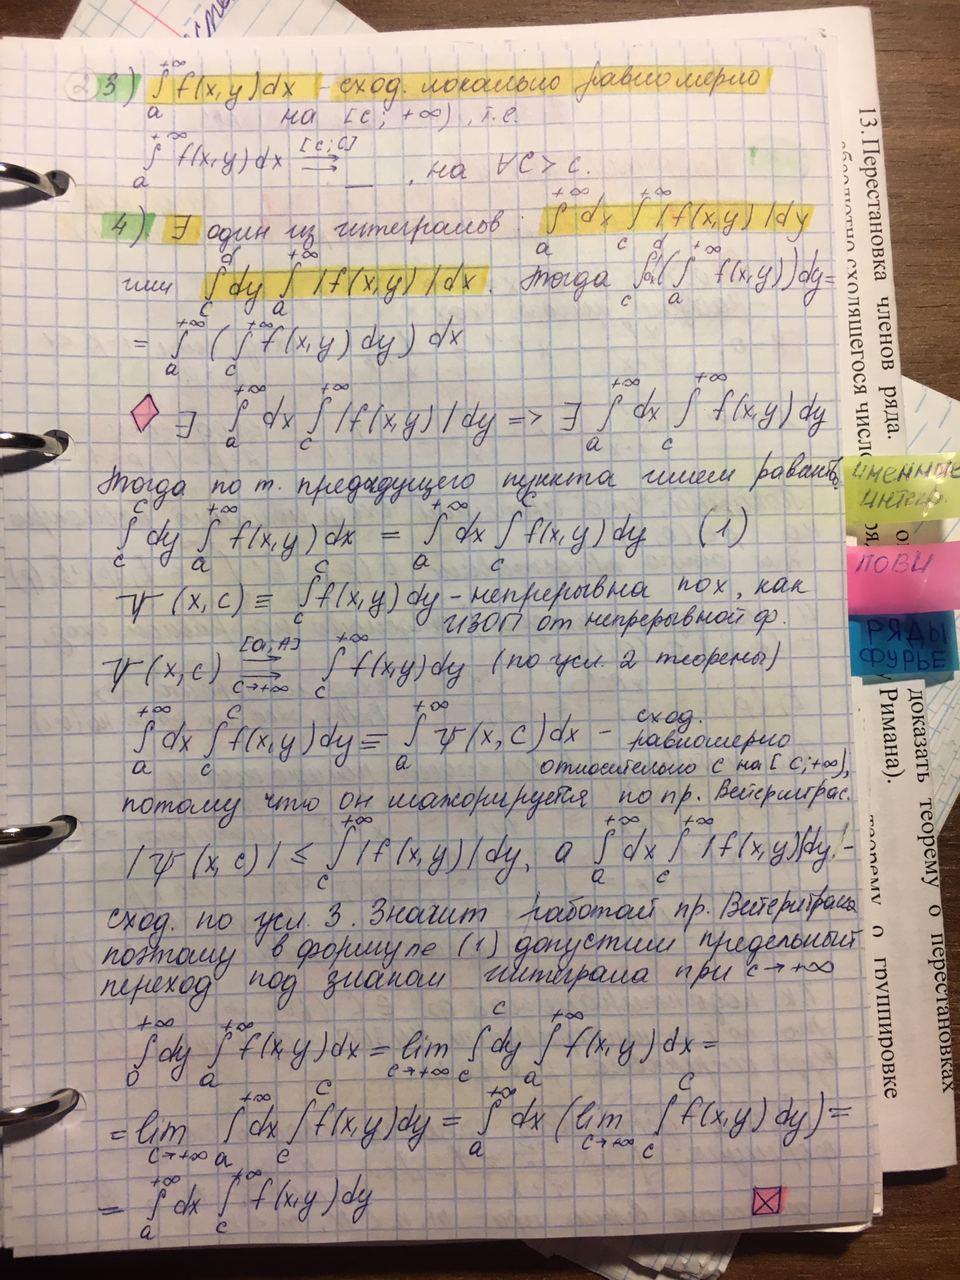 2 3) ∫ₐ^{+∞} f(x,y)dx - сход. локально равномерно
на [c; +∞), т.е.
∫ₐ^{+∞} f(x,y)dx ⇉^{[c;C]} , на ∀C>c.
4) ∃ один из интегралов: ∫ₐ^{+∞} dx ∫_c^{+∞} |f(x,y)|dy
или ∫_c^d dy ∫ₐ^{+∞} |f(x,y)|dx. Тогда ∫_c^d (∫ₐ^{+∞} f(x,y))dy=
= ∫ₐ^{+∞} (∫_c^{+∞} f(x,y)dy) dx
∃ ∫ₐ^{+∞} dx ∫_c^{+∞} |f(x,y)|dy => ∃ ∫ₐ^{+∞} dx ∫_c^{+∞} f(x,y)dy
Тогда по т. предыдущего пункта имеем
∫_c^C dy ∫ₐ^{+∞} f(x,y)dx = ∫ₐ^{+∞} dx ∫_c^C f(x,y)dy (1)
Ψ(x,c) ≡ ∫_c^C f(x,y)dy - непрерывна по x, как
ИЗОП от непрерывной ф.
Ψ(x,c) ⇉^{[a;A]}_{c→+∞} ∫_c^{+∞} f(x,y)dy (по усл. 2 теоремы)
∫ₐ^{+∞} dx ∫_c^C f(x,y)dy ≡ ∫ₐ^{+∞} Ψ(x,c)dx - сход.
равномерно
относительно c на [c;+∞),
потому что он мажорируется по пр. Вейерштрас.
|Ψ(x,c)| ≤ ∫_c^{+∞} |f(x,y)|dy, а ∫ₐ^{+∞} dx ∫_c^{+∞} |f(x,y)|dy -
сход. по усл. 3. Значит работает пр. Вейерштраса
поэтому в формуле (1) допустим предельный
переход под знаком интеграла при c→+∞
∫₀^{+∞} dy ∫ₐ^{+∞} f(x,y)dx = lim_{c→+∞} ∫_c^C dy ∫ₐ^{+∞} f(x,y)dx =
= lim_{c→+∞} ∫ₐ^{+∞} dx ∫_c^C f(x,y)dy = ∫ₐ^{+∞} dx (lim_{c→+∞} ∫_c^C f(x,y)dy) =
= ∫ₐ^{+∞} dx ∫_c^{+∞} f(x,y)dy
ПОВИ
РЯДЫ
ФУРЬЕ
13. Перестановка членов ряда.
абсолютно сходящегося
доказать теорему о перестановках
Римана).
теорему о группировке